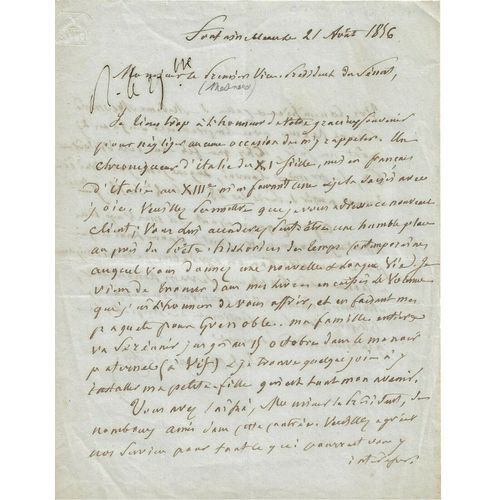 Fontainebleau 21 Août 1856
Monsieur le Premier Vice Président du Sénat,
(Mesnard)
R. le 23
Je tiens trop à l'honneur de votre gracieux souvenir
pour négliger aucune occasion de m'y rappeler. Un
chroniqueur d'Italie du XIe siècle, mis en français
d'Italie au XIIIe, m'en fournit une que je saisis avec
joie. Veuillez permettre que je vous adresse ce nouveau
client; Vous lui accorderez peut être une humble place
auprès du Poëte historien des temps contemporains
auquel vous donnez une nouvelle & longue vie. Je
viens de trouver dans mes livres un exemplaire du volume
que j'ai l'honneur de vous offrir, et en faisant mes
paquets pour Grenoble. ma famille entière
va se réunir jusqu'au 15 octobre dans le manoir
paternel (à Vif) & je trouve quelque joie à y
installer ma petite-fille qui est tout mon avenir.
Vous avez laissé, Monsieur le Président, de
nombreux amis dans cette contrée. Veuillez agréer
nos services pour tout ce qui pourrait vous y